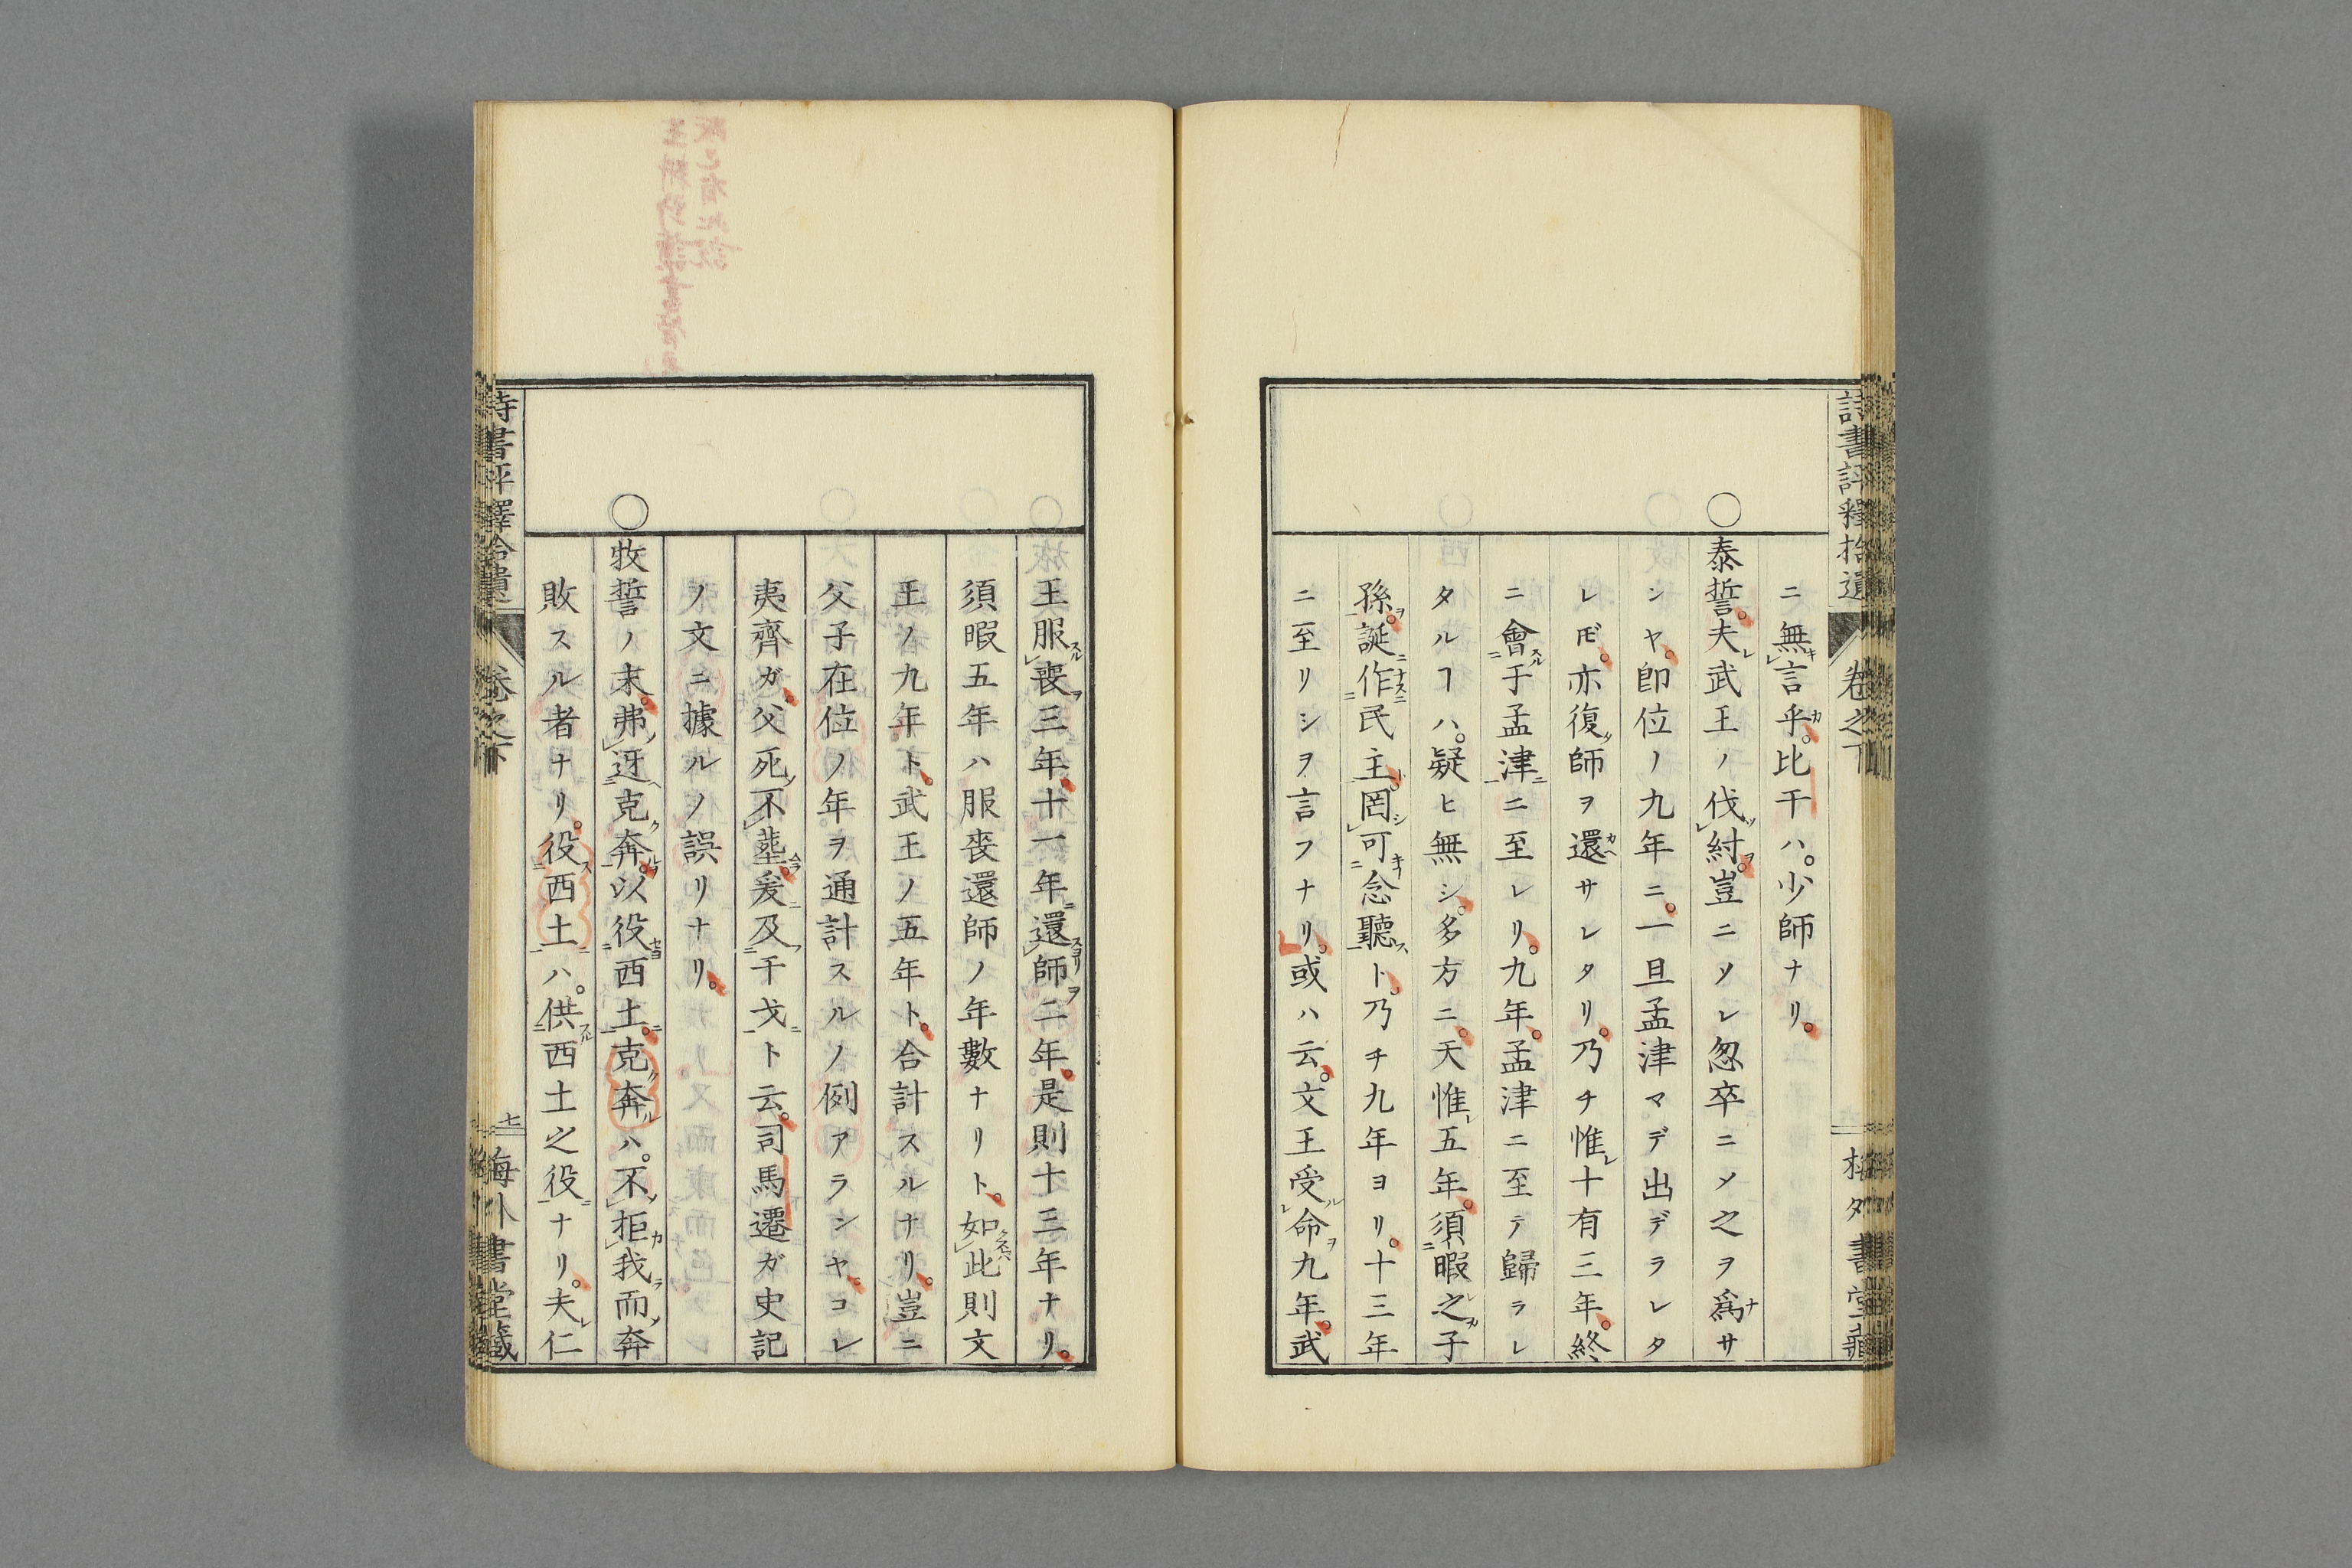 詩書評釋拾遺
卷之下
ニ無言乎。比干ハ。少師ナリ。
○泰誓。夫武王ノ伐紂。豈ニソレ忽卒ニメ之ヲ爲サ
ンヤ。卽位ノ九年ニ。一旦孟津マデ出デラレタ
レ𪜈。亦復師ヲ還サレタリ。乃チ惟十有三年。終
ニ會于孟津ニ至レリ。九年。孟津ニ至テ歸ラレ
タルヿハ。疑ヒ無シ。多方ニ。天惟五年。須暇之子
孫。誕作民主。罔可念聽ト。乃チ九年ヨリ。十三年
ニ至リシヲ言フナリ。或ハ云。文王受命九年。武
王服喪三年。十一年還師二年。是則十三年ナリ。
須暇五年ハ服喪還師ノ年數ナリト。如此則文
王ノ九年ト。武王ノ五年ト。合計スルナリ。豈ニ
父子在位ノ年ヲ通計スルノ例アラシヤ。コレ
夷齊ガ。父死不葬。爰及干戈ト云。司馬遷ガ史記
ノ文ニ據ルノ誤リナリ。
○牧誓ノ末。弗迓克奔。以役西土。克奔ハ。不拒我而奔
敗スル者ナリ。役西土ハ。供西土之役ナリ。夫仁
詩書評釋拾遺
卷之下
十
海外書堂藏